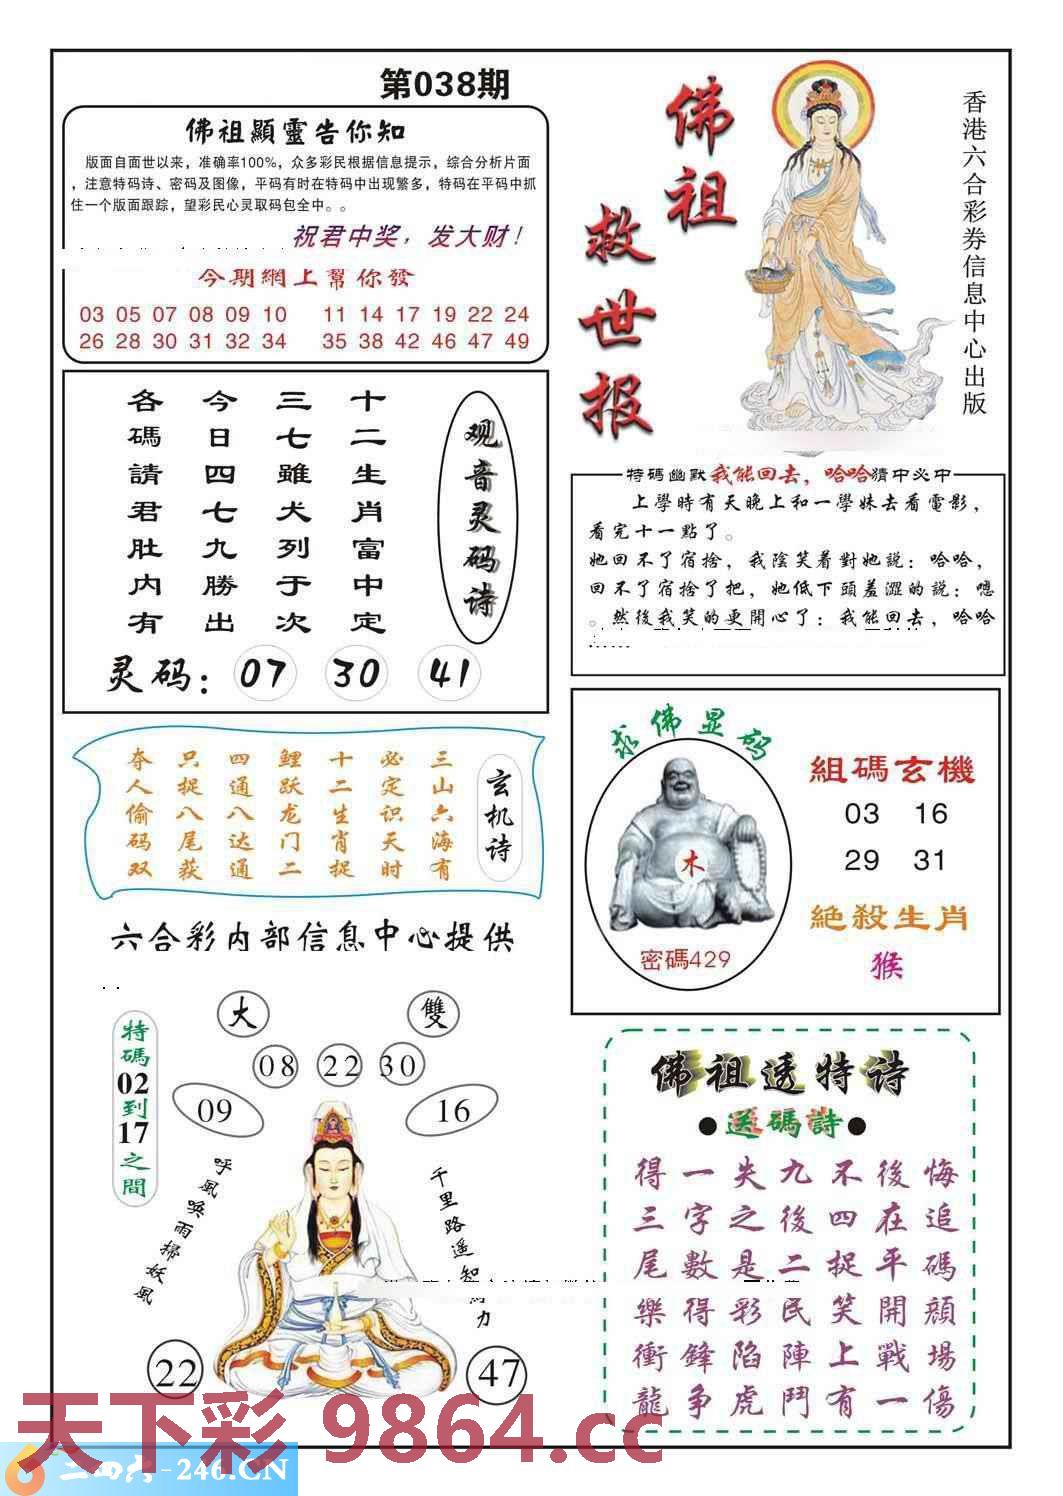 第038期
佛祖顯靈告你知
版面自面世以来，准确率100%，众多彩民根据信息提示，综合分析片面
，注意特码诗、密码及图像，平码有时在特码中出现繁多，特码在平码中抓
住一个版面跟踪，望彩民心灵取码包全中。。
祝君中奖，发大财！
今期網上幫你發
03 05 07 08 09 10 11 14 17 19 22 24
26 28 30 31 32 34 35 38 42 46 47 49
佛祖
救世报
香港六合彩券信息中心出版
观音灵码诗
十二生肖富中定
三七雖犬列于次
今日四七九勝出
各碼請君肚内有
灵码：07 30 41
特码幽默我能回去，哈哈猜中必中
上學時有天晚上和一學妹去看電影，
看完十一點了。
她回不了宿捨，我陰笑着對她說：哈哈，
回不了宿捨了把，她低下頭羞澀的說：嗯
。然後我笑的更開心了：我能回去，哈哈
玄机诗
三山六海有
必定识天时
十二生肖捉
鲤跃龙门二
四通八达通
只捉八尾获
夺人偷码双
求佛显码
木
密碼429
組碼玄機
03 16
29 31
絶殺生肖
猴
六合彩内部信息中心提供
特碼02到17之間
大 雙
08 22 30
09 16
呼風唤雨掃妖風
千里路遥知
力
22 47
佛祖透特诗
●送碼詩●
得一失九不後悔
三字之後四在追
尾數是二捉平碼
樂得彩民笑開顔
衝鋒陷陣上戰場
龍争虎鬥有一傷
天下彩 9864.cc
二四六-246.CN